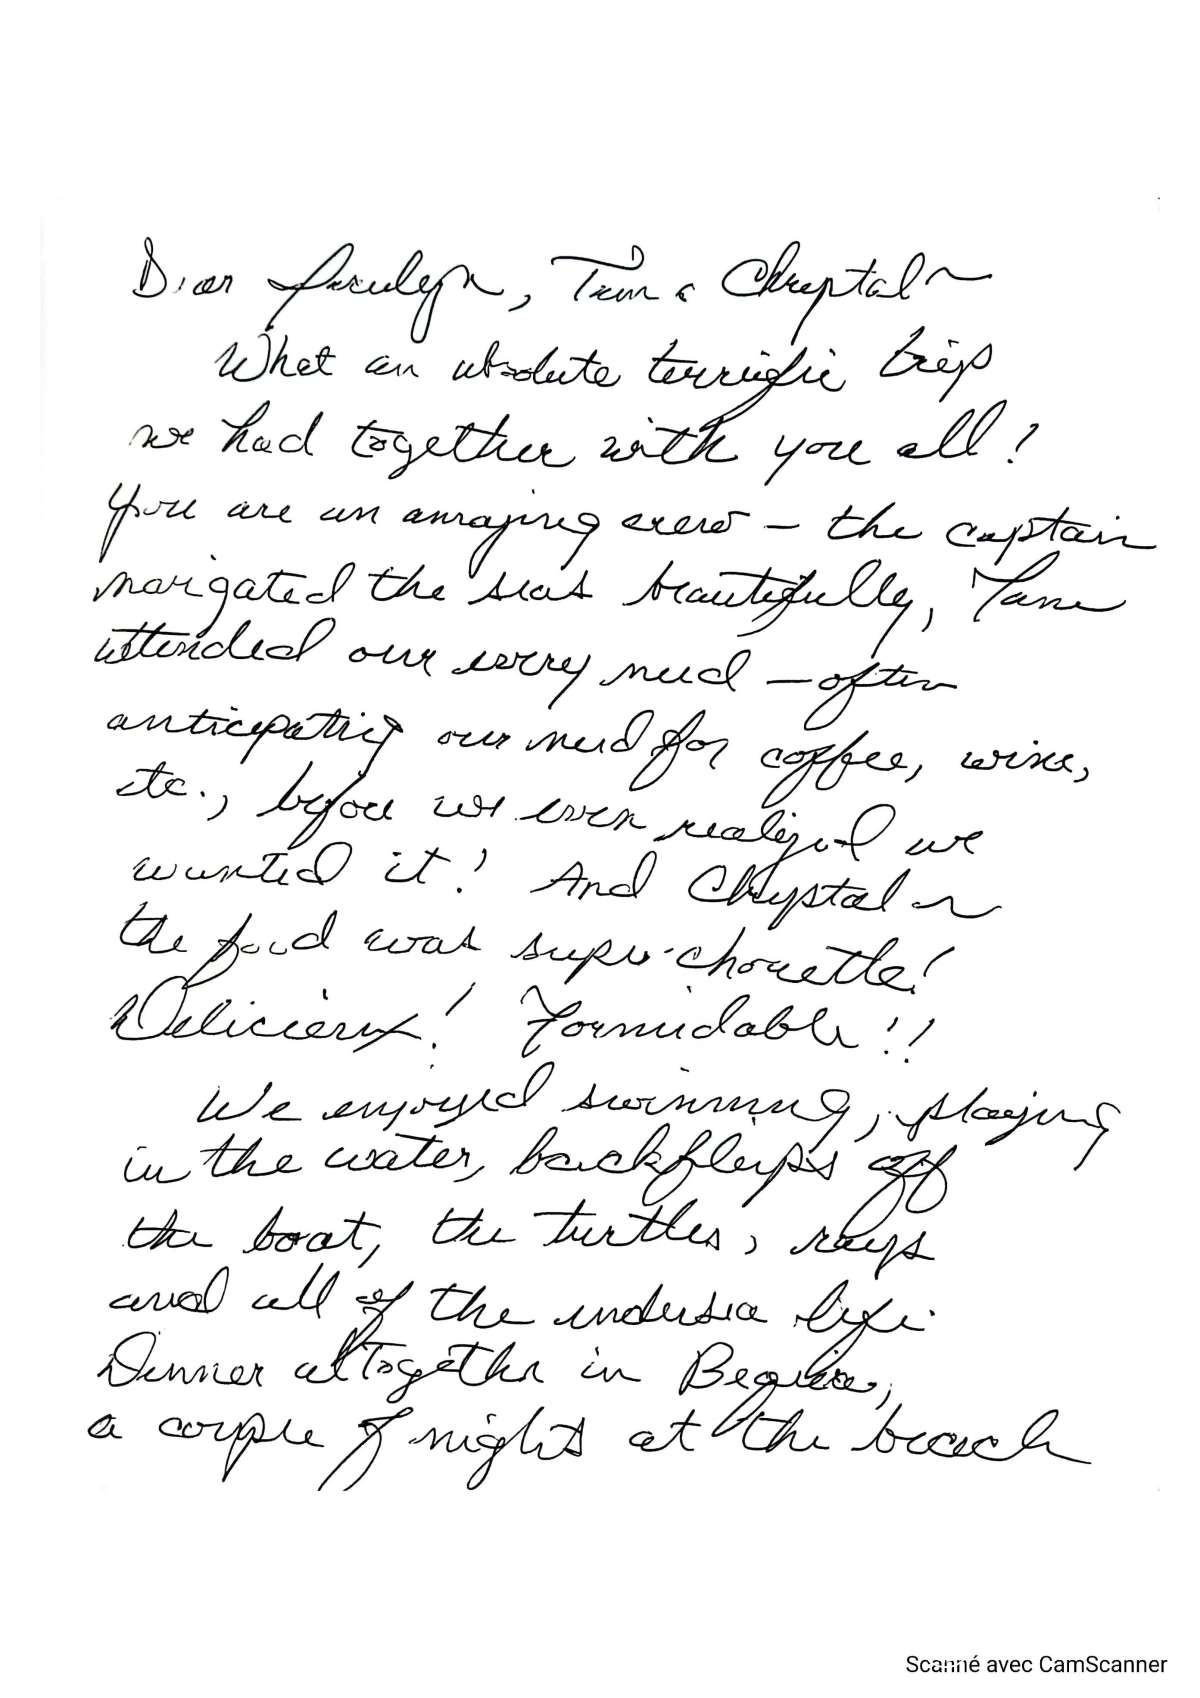 Dear Jocelyn, Tim & Chrystal ~
What an absolute terrific trip
we had together with you all!
You are an amazing crew – the captain
navigated the seas beautifully,
attended our every need – often
anticipating our need for coffee, wine,
etc., before we even realized we
wanted it! And Chrystal ~
the food was super-chouette!
Délicieux! Formidable!!
We enjoyed swimming, playing
in the water, backflips off
the boat, the turtles, rays
and all of the undersea life.
Dinner altogether in Bequia,
a couple of nights at the beach
Scanné avec CamScanner